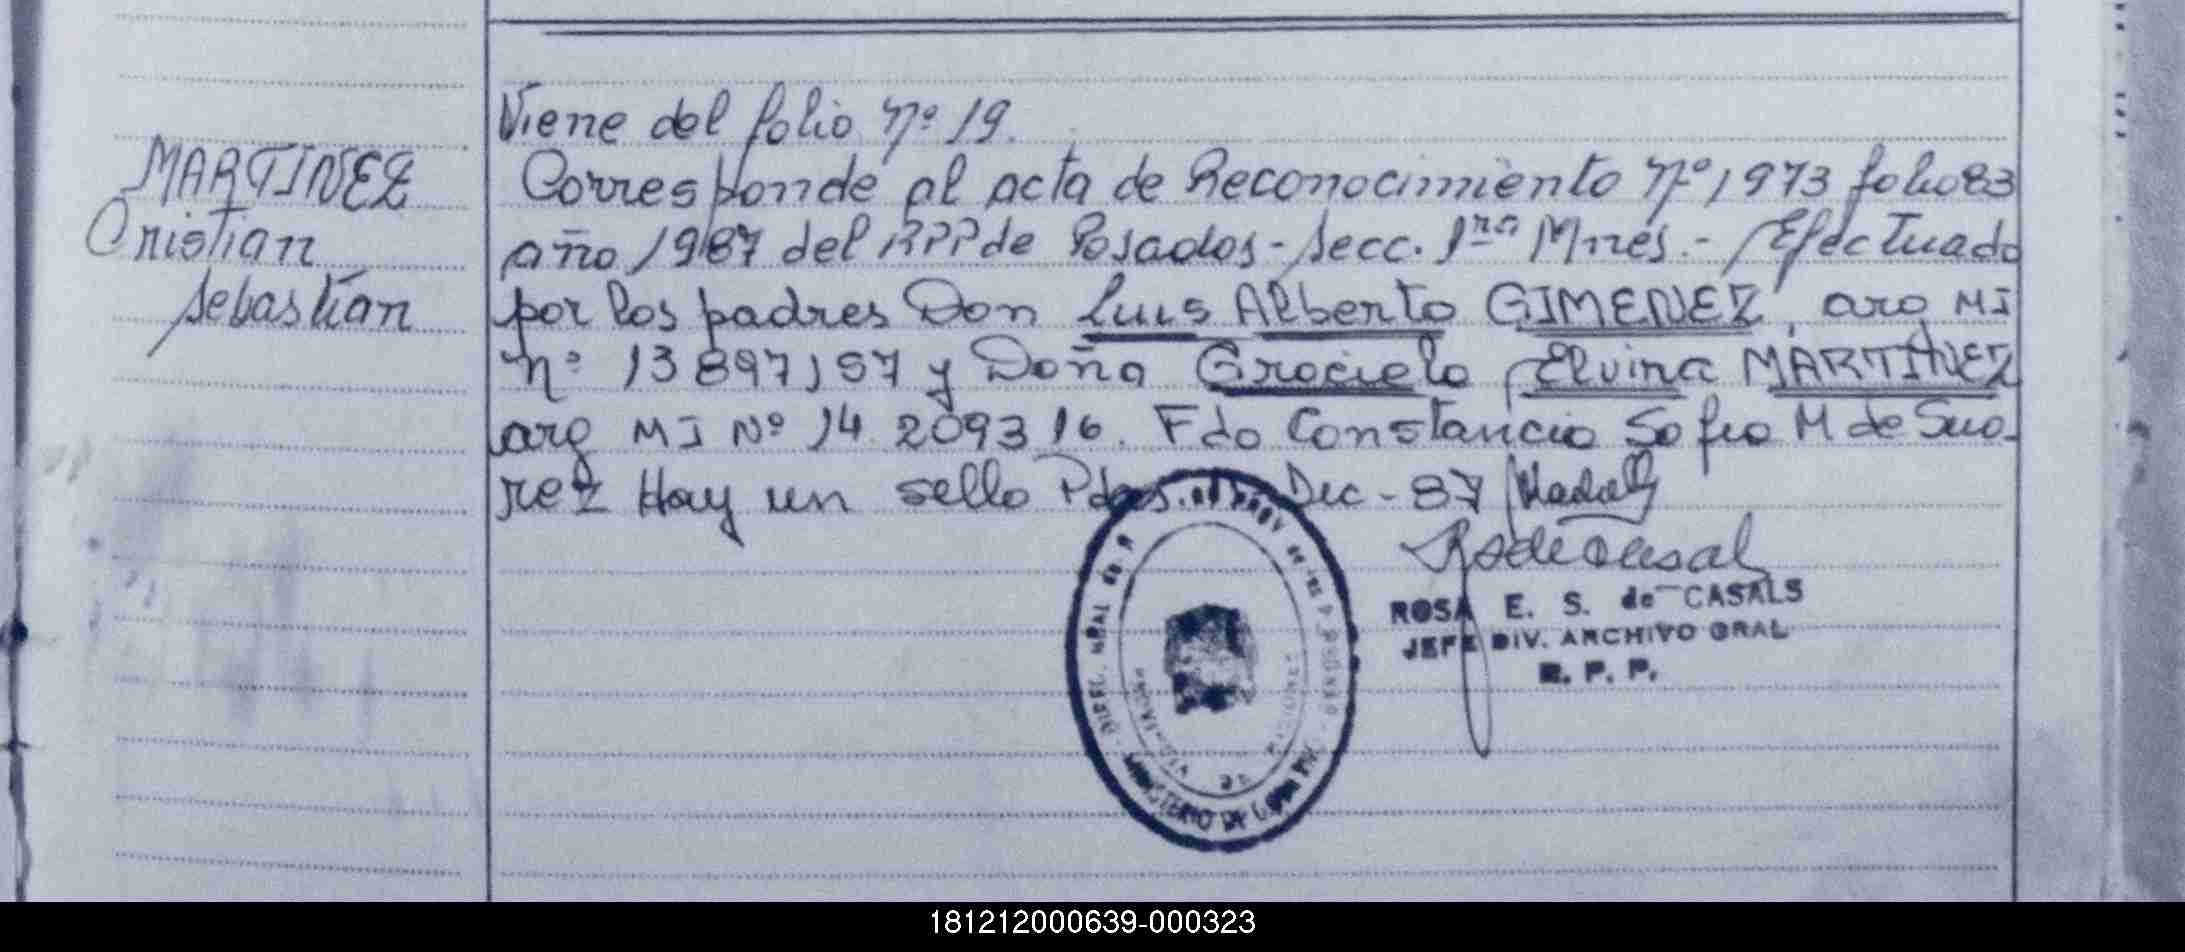 MARTINEZ
Cristian
Sebastian
Viene del folio Nº 19.
Corresponde al acta de Reconocimiento Nº 1973 folio 83
año 1987 del RPP de Posadas - Secc. 1ra Mnes. - Efectuado
por los padres Don Luis Alberto GIMENEZ, arg MI
nº 13897157 y Doña Graciela Elvira MARTINEZ
arg MI Nº 14.209316. Fdo Constancia Sofia M de Sua-
rez Hay un sello Pdas. Dic - 87
ROSA E. S. de CASALS
JEFE DIV. ARCHIVO GRAL
R. P. P.
MINISTERIO DE
181212000639-000323